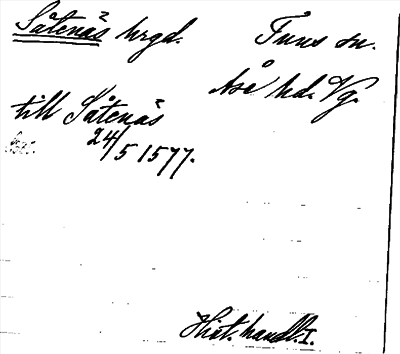 Såtenäs hrgd. Tuns sn.
Åse hd. Vg.
till Såtenäs
24/5 1577.
Hist. handl. I.